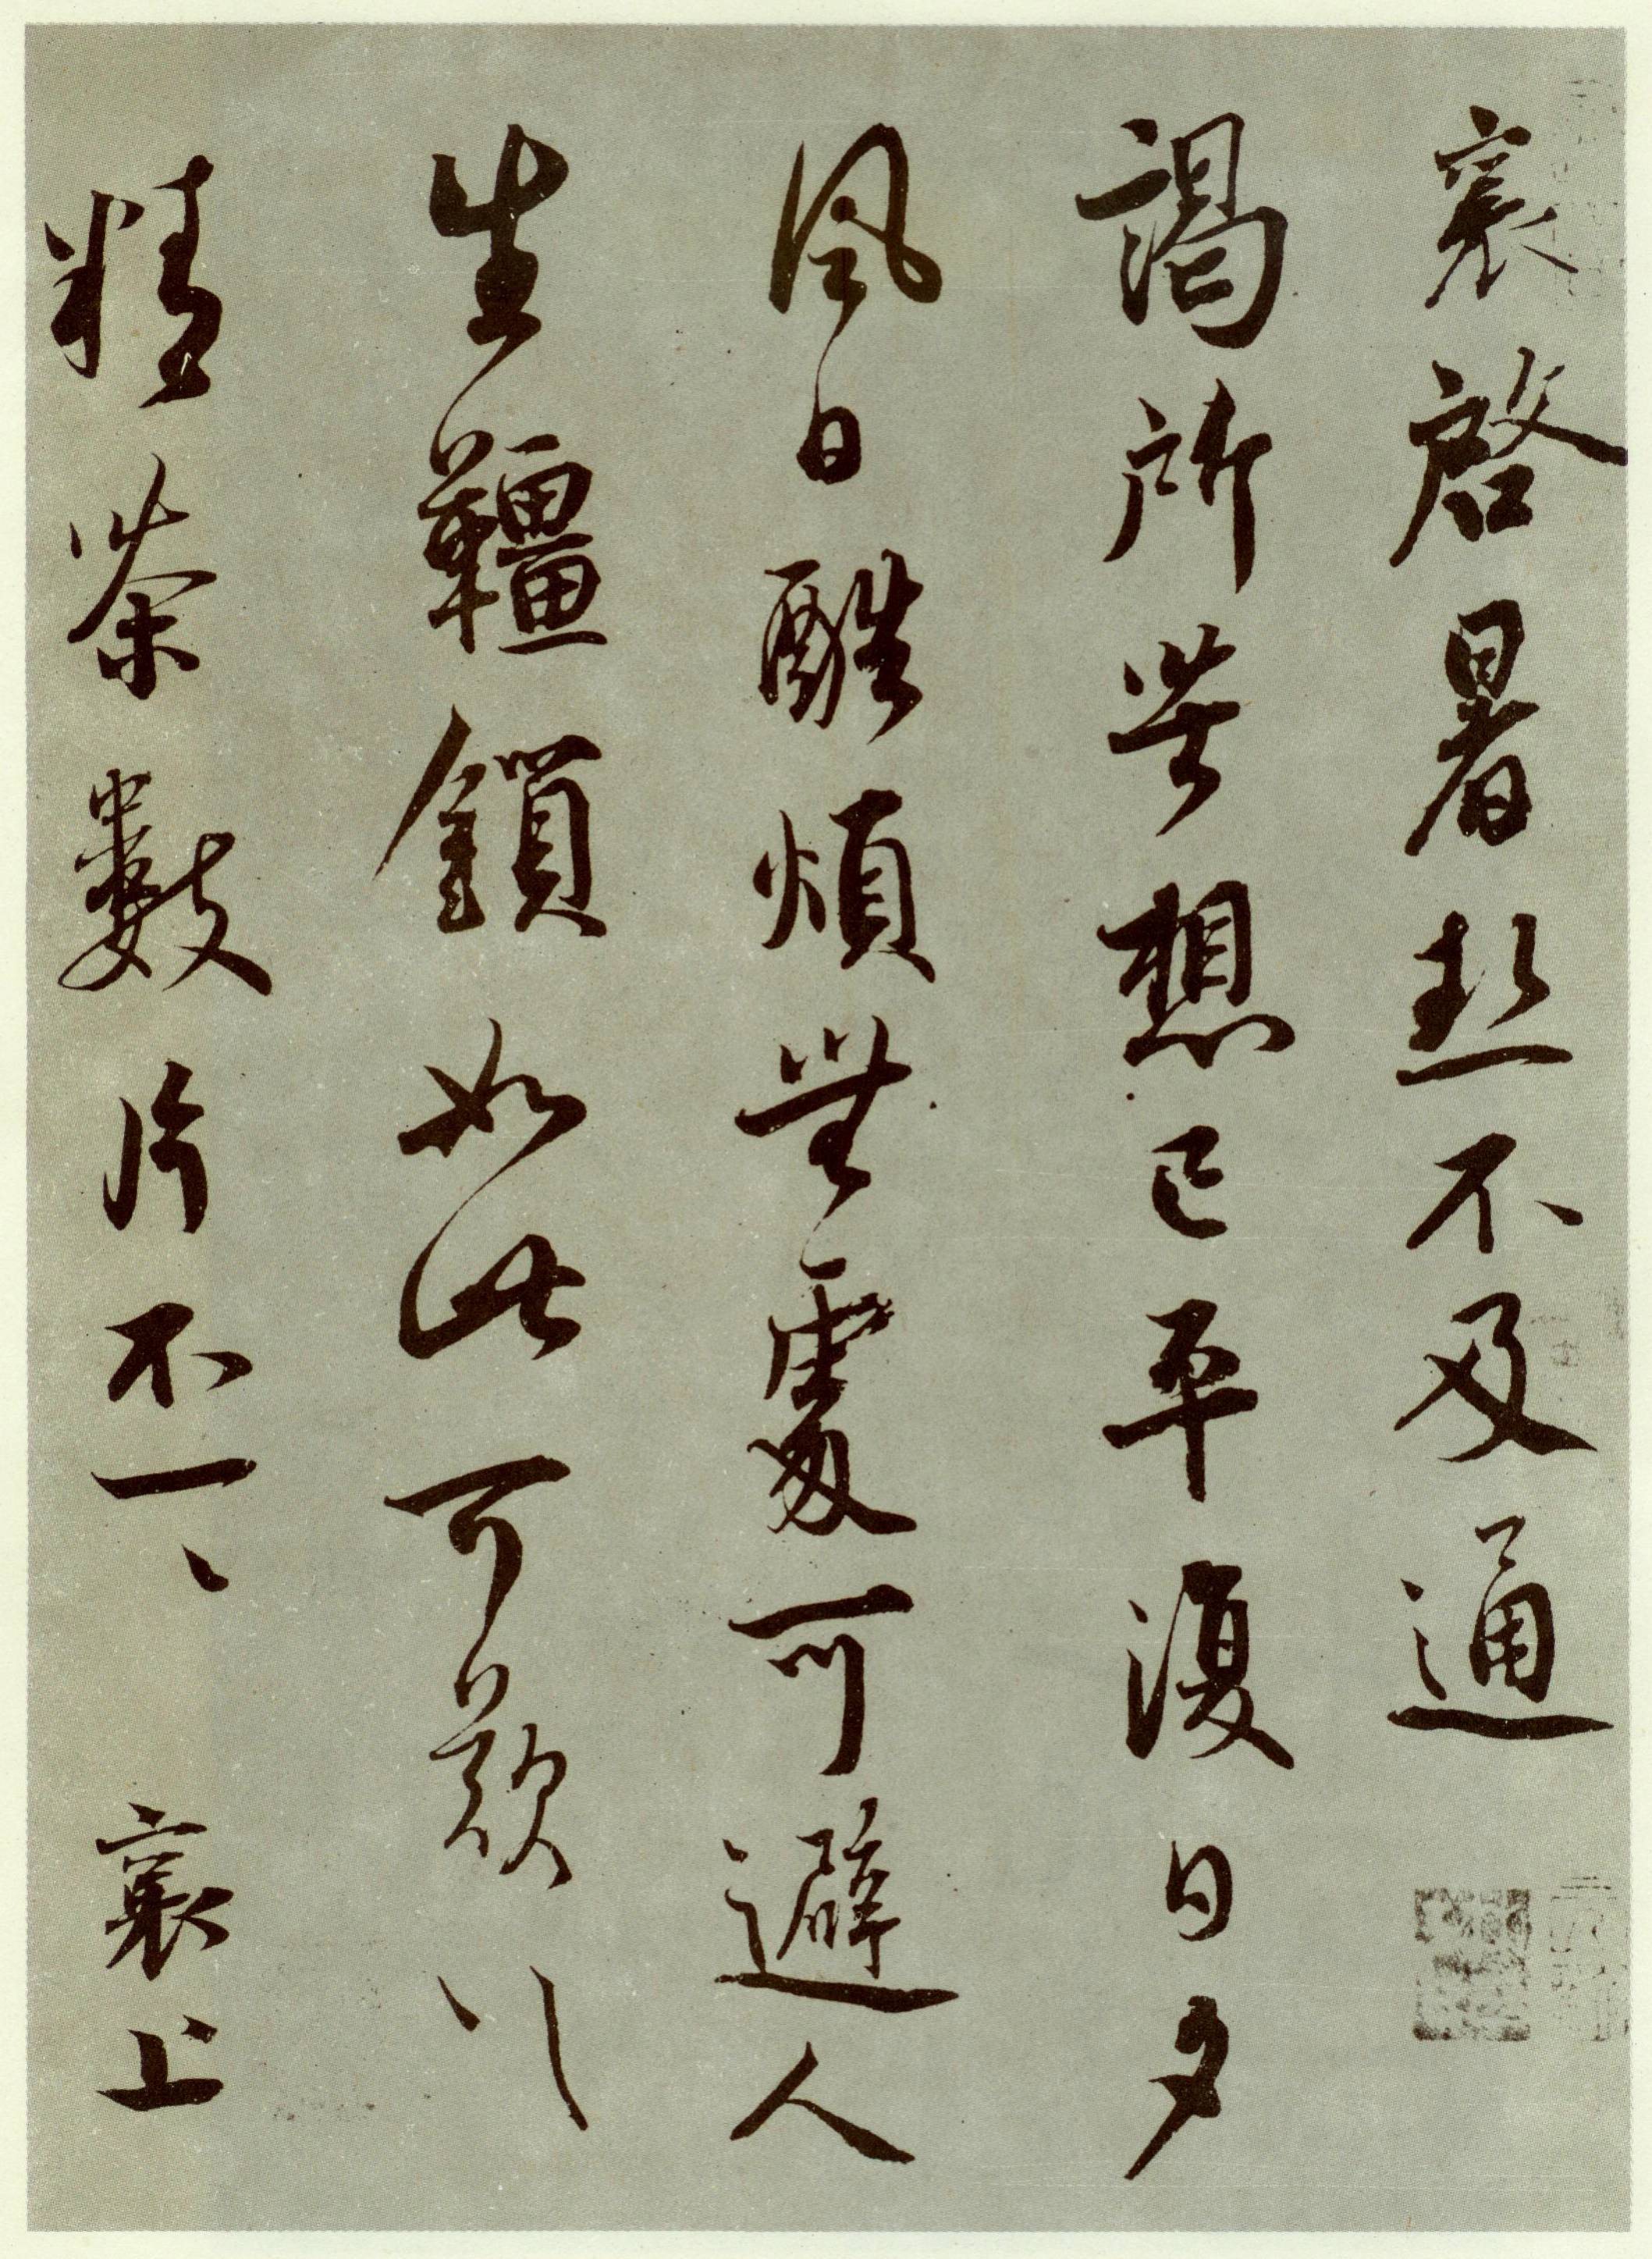 襄啓暑熱不及通
謁所苦想已平復日夕
風日酷煩無處可避人
生韁鎖如此可歎以
精茶數片不一、襄上